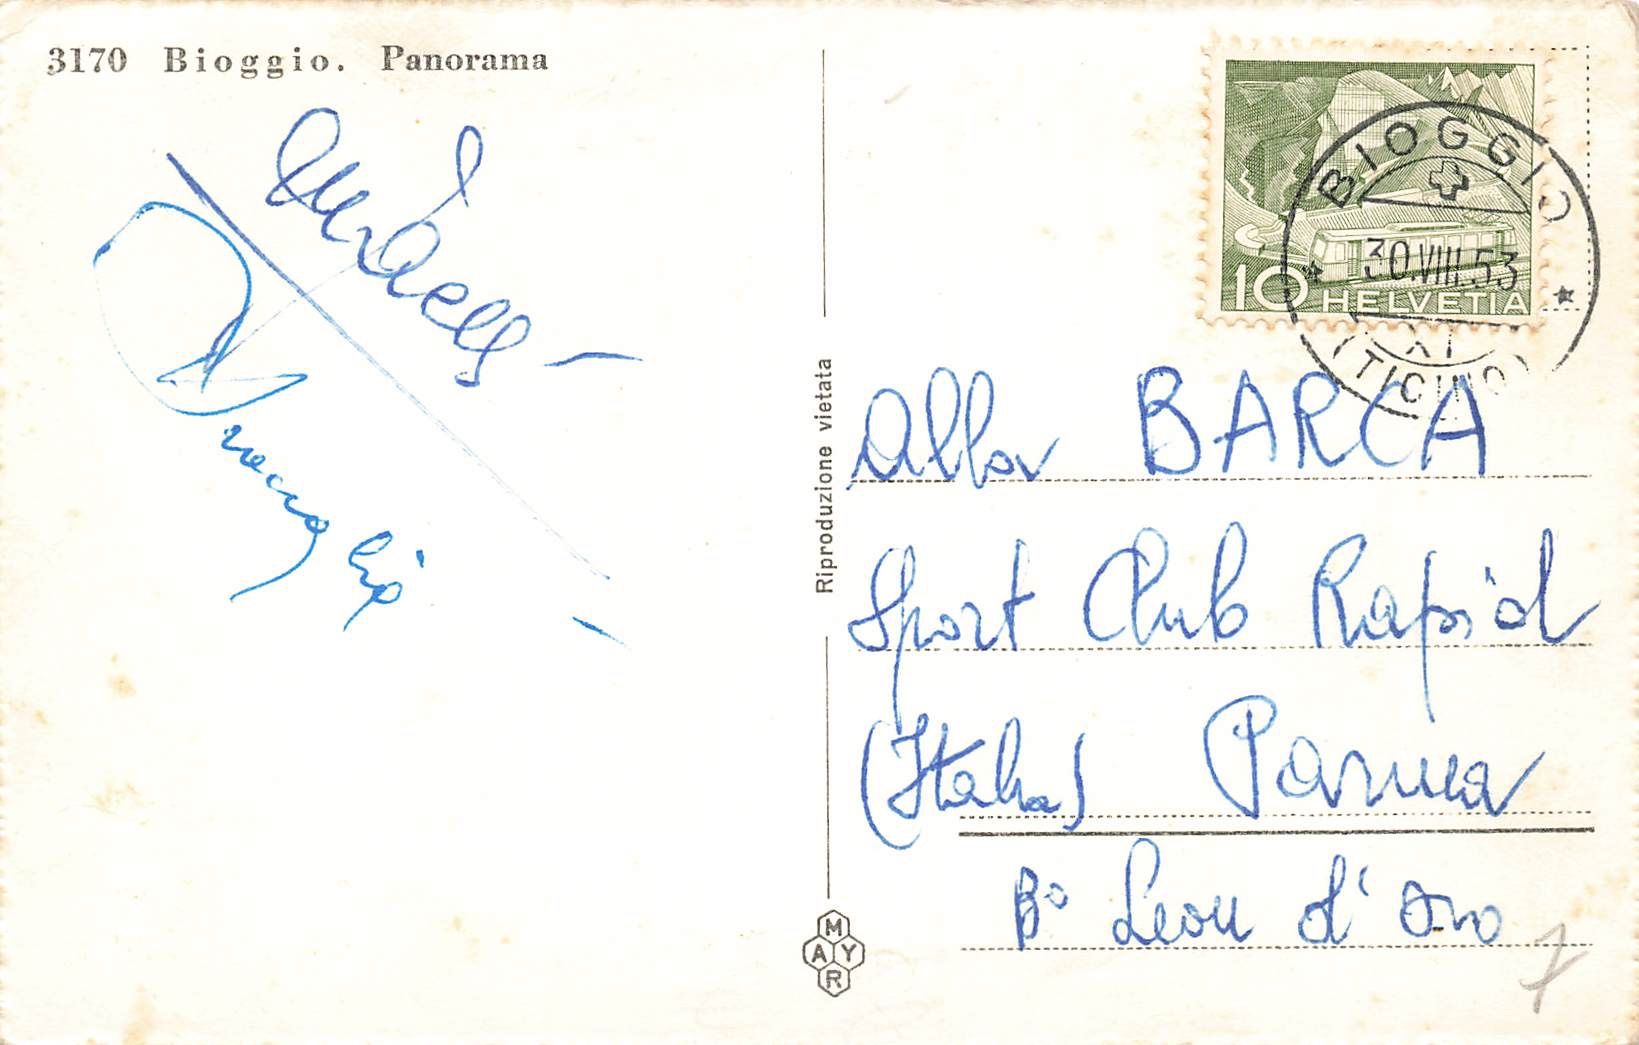 3170 Bioggio. Panorama
10 HELVETIA
BIOGGIO
30.VIII.53
XI
(TICINO)
Riproduzione vietata
Alla BARCA
Sport Club Rapid
(Italia) Parma
B° Leon d'Oro
MAYR
7